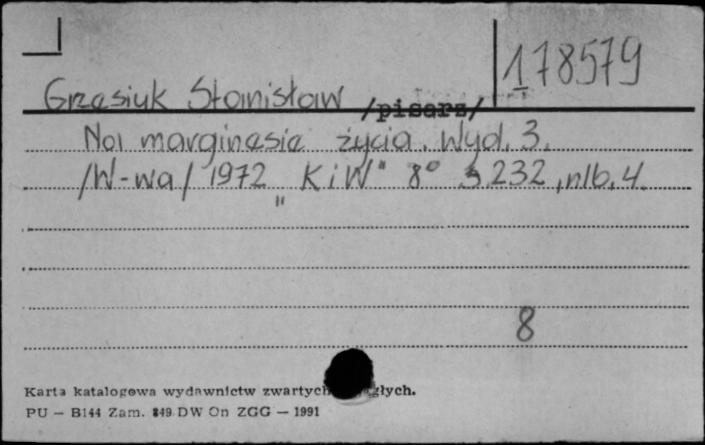 178579
Grzesiuk Stanisław /pisarz/
Na marginesie życia. Wyd. 3.
/W-wa/ 1972 "KiW" 8° s. 232, nlb. 4.
8
Karta katalogowa wydawnictw zwartych głych.
PU — B144 Zam. 849 DW On ZGG — 1991